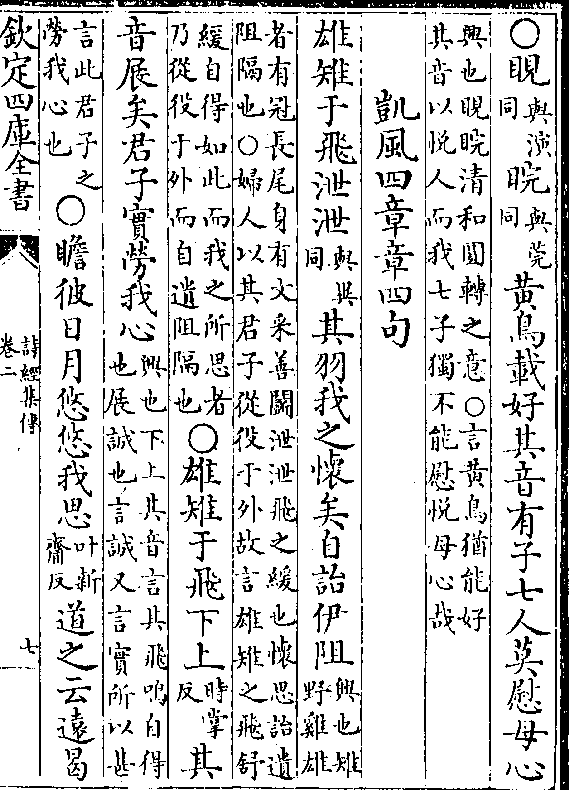 ○睍與演同睆與莞同黃鳥載好其音有子七人莫慰母心
興也睍睆清和圓轉之意○言黃鳥猶能好其音以悅人而我七子獨不能慰悅母心哉
凱風四章章四句
雄雉于飛泄泄與異同其羽我之懷矣自詒伊阻興也雉野雞雄
者有冠長尾身有文采善鬬泄泄飛之緩也懷思詒遺阻隔也○婦人以其君子從役于外故言雄雉之飛舒
緩自得如此而我之所思者乃從役于外而自遺阻隔也○雄雉于飛下上時掌反其
音展矣君子實勞我心興也下上其音言其飛鳴自得也展誠也言誠又言實所以甚
言此君子之勞我心也○瞻彼日月悠悠我思叶新齎反道之云遠曷
欽定四庫全書
詩經集傳
卷二
七